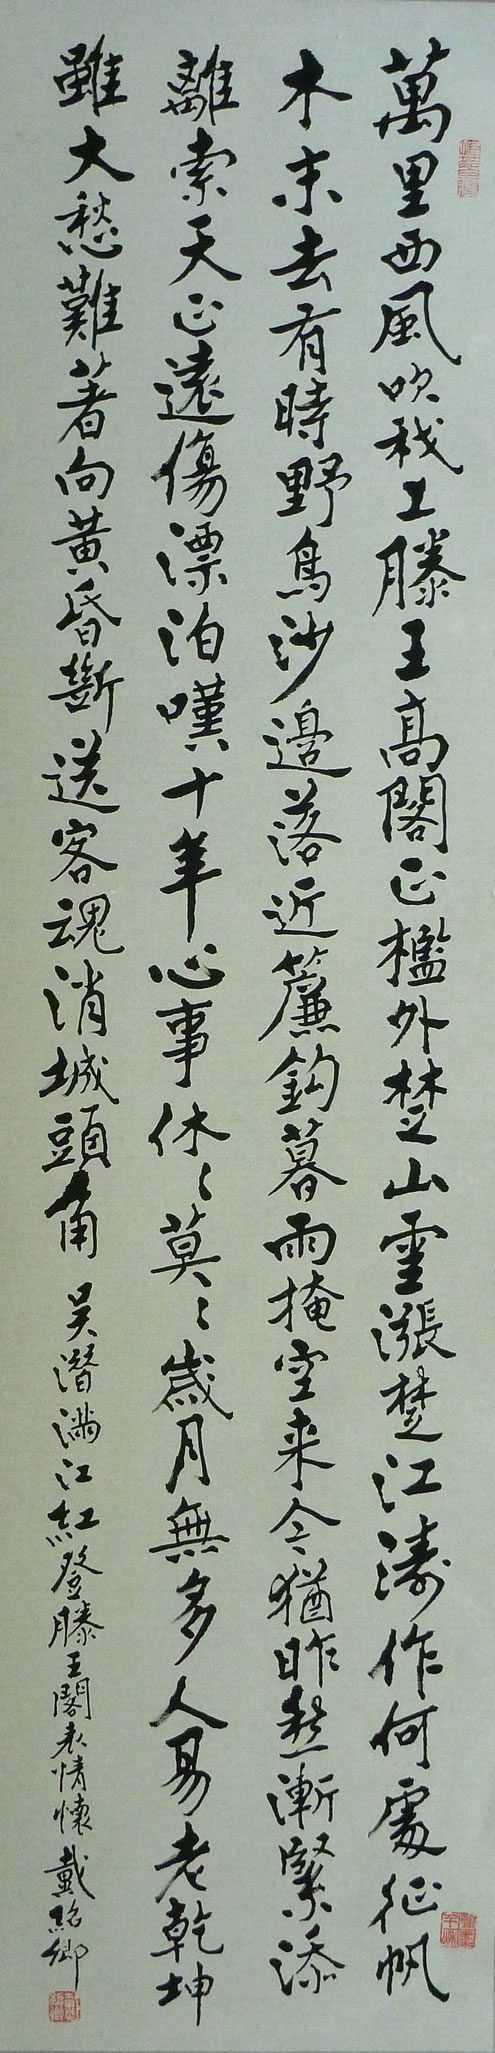 萬里西風吹我上滕王高閣正檻外楚山雲漲楚江濤作何處征帆
木末去有時野鳥沙邊落近簾鉤暮雨掩空來今猶昨漸緊添
離索天正遠傷漂泊嘆十年心事休〻莫〻歲月無多人易老乾坤
雖大愁難著向黃昏斷送客魂消城頭角 吳潛滿江紅登滕王閣表情懷 戴